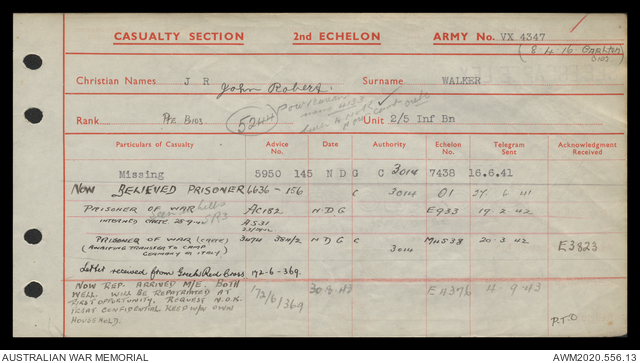 CASUALTY SECTION 2nd ECHELON ARMY No. VX 4347
(8.4.16. Carlton
Christian Names J R Surname WALKER
John Robert.
Rank Pte B103. 5244 Unit 2/5 Inf Bn
Particulars of Casualty Advice No. Date Authority Echelon No. Telegram Sent Acknowledgment Received
Missing 5950 145 N D G C 3014 7438 16.6.41
NOW BELIEVED PRISONER 6636 - 156 C 3014 01 27. 6. 41
PRISONER OF WAR AC182 N.D.G E933 19.2.42
INTERNED CRETE 25.9.41 A531
PRISONER OF WAR (CRETE) 3474 384/2 N D G C 3014 M4538 20.3.42 E3823
(AWAITING TRANSFER TO CAMP
GERMANY OR ITALY)
Letter received from Greek Red Cross 172-6-369.
NOW REP. ARRIVED M/E. BOTH 172/6/369 30.8.43 E4376 4.9.43
WELL. WILL BE REPATRIATED AT
FIRST OPPORTUNITY. REQUEST N.O.K.
TREAT CONFIDENTIAL KEEP W/IN OWN
HOUSEHOLD.
P.T.O
AUSTRALIAN WAR MEMORIAL AWM2020.556.13